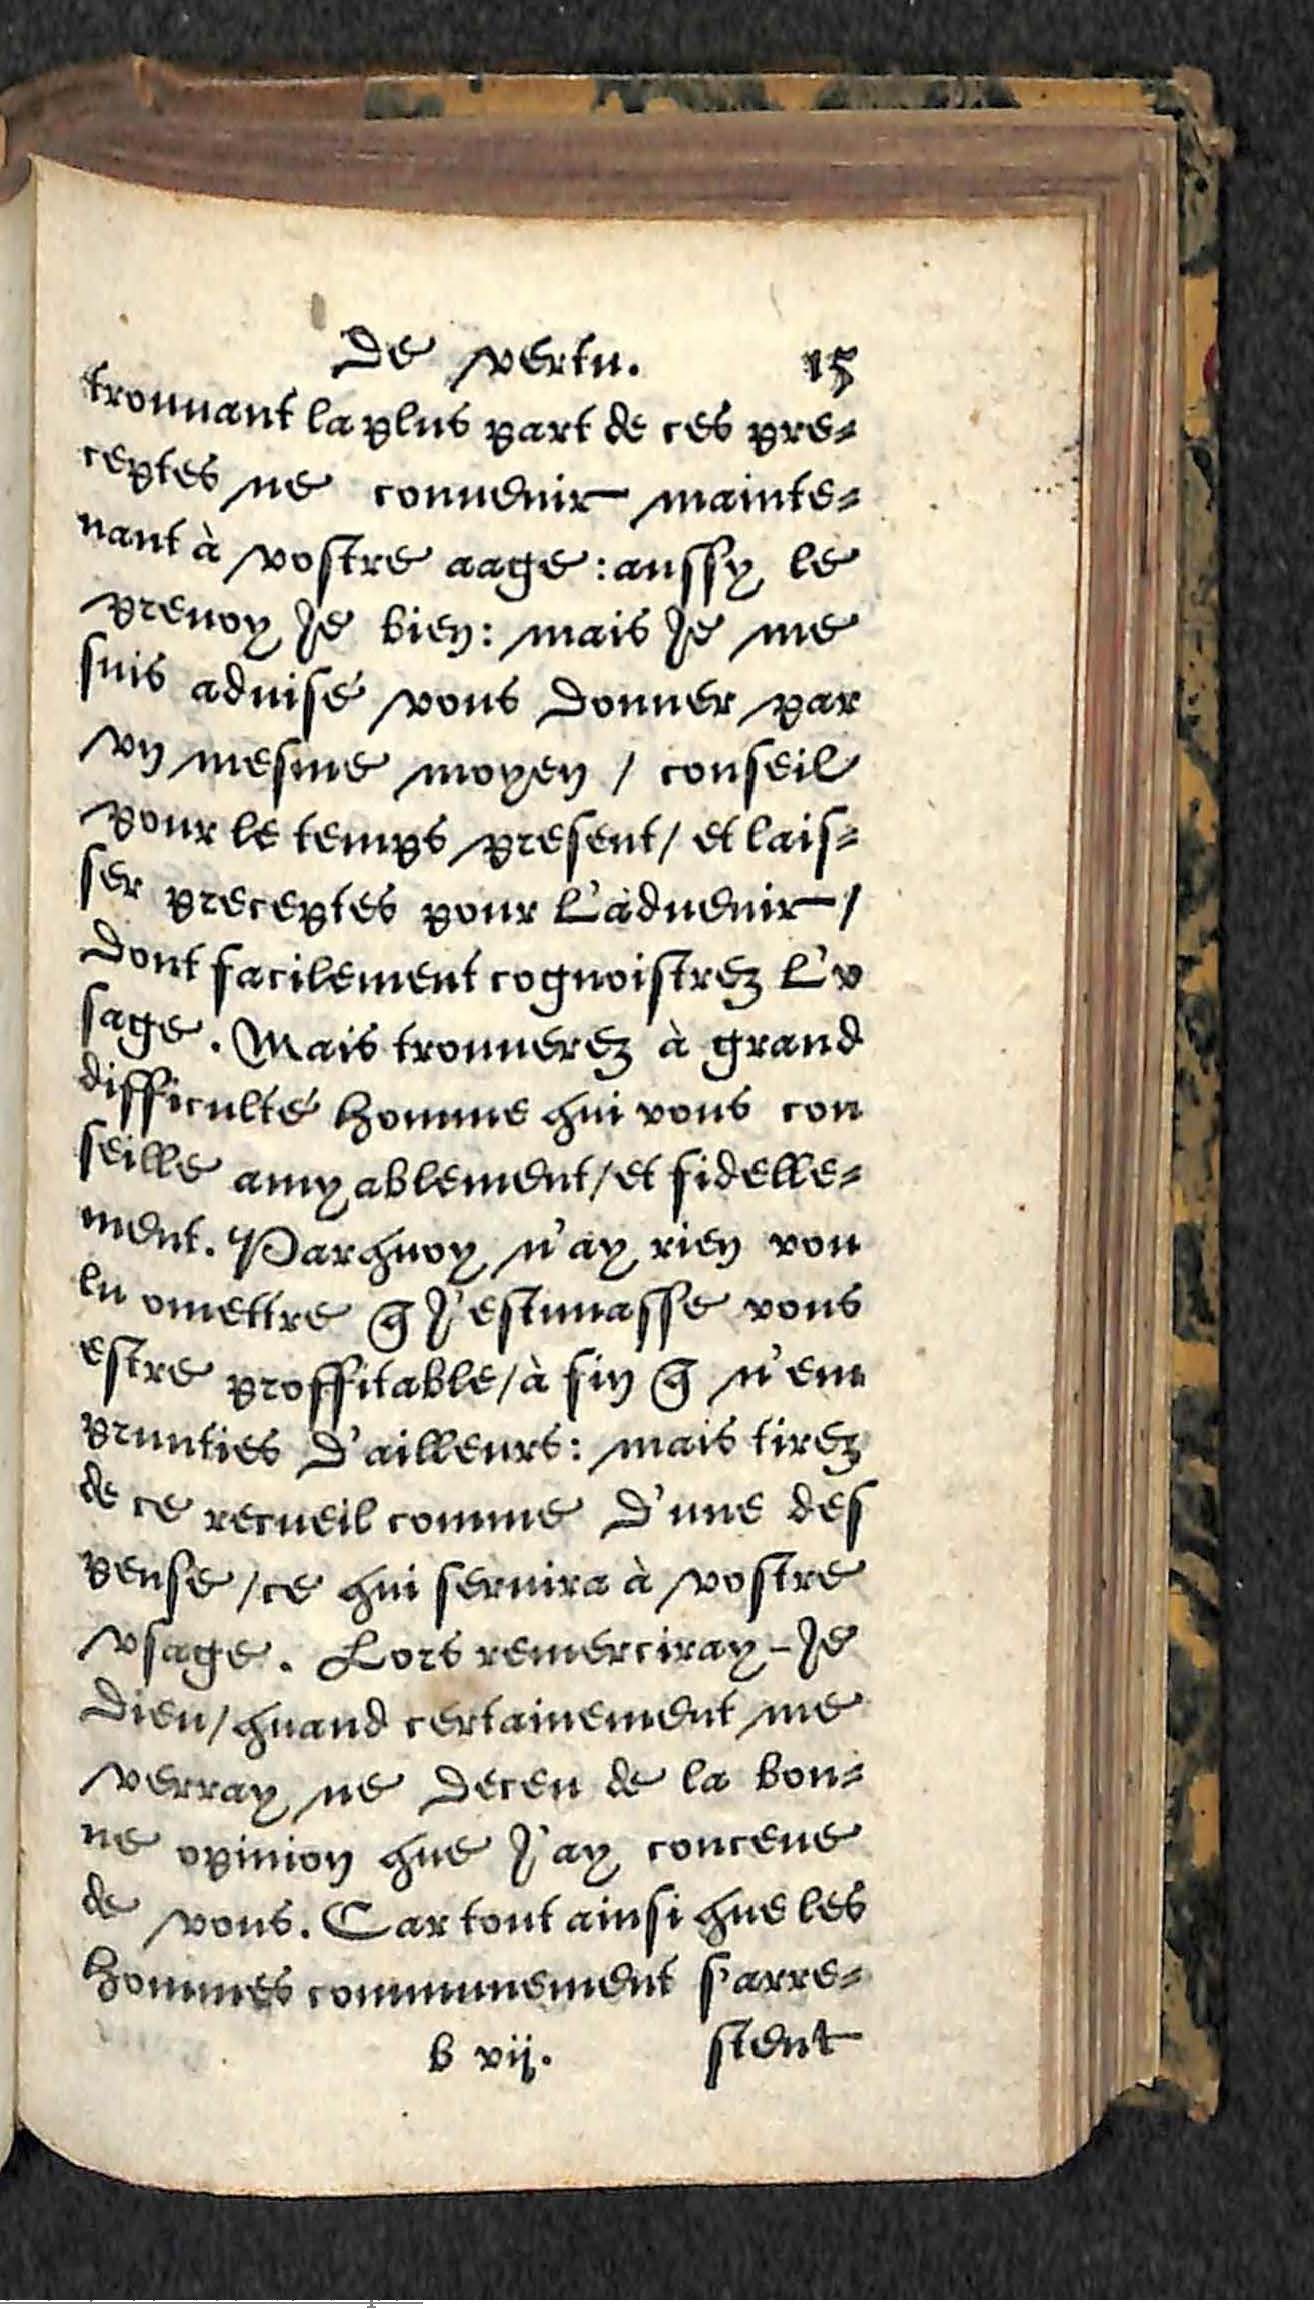 De vertu. 15
trouuant la plus part de ces pre-
ceptes ne conuenir mainte-
nant à vostre aage: aussy le
preuoy Je bien: mais Je me
suis aduisé vous donner par
vn mesme moyen / conseil
pour le temps present / et lais-
ser preceptes pour L'aduenir /
Dont facilement cognoistrez L'v
sage. Mais trouuerez à grand
difficulté homme qui vous con
seille amyablement / et fidelle-
ment. Parquoy n'ay rien vou
lu omettre q̃ J'estimasse vous
estre proffitable / à fin q̃ n'em
prunties D'ailleurs: mais tirez
de ce recueil comme D'une des
pense / ce qui seruira à vostre
vsage. Lors remerciray-Je
Dieu / quand certainement me
verray ne deceu de la bon-
ne opinion que J'ay conceue
de vous. Car tout ainsi que les
hommes communement s'arre-
b vij. stent